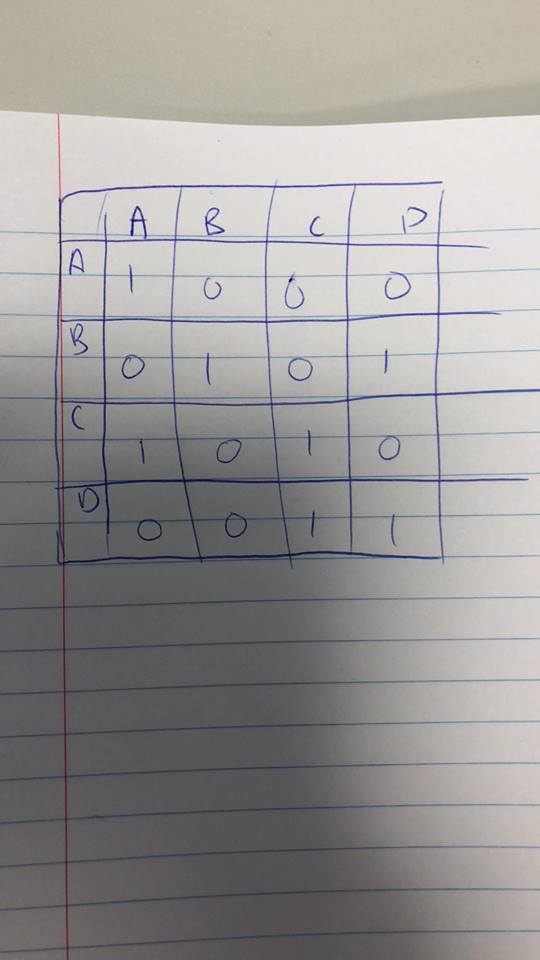 A B C D
A 1 0 0 0
B 0 1 0 1
C 1 0 1 0
D 0 0 1 1